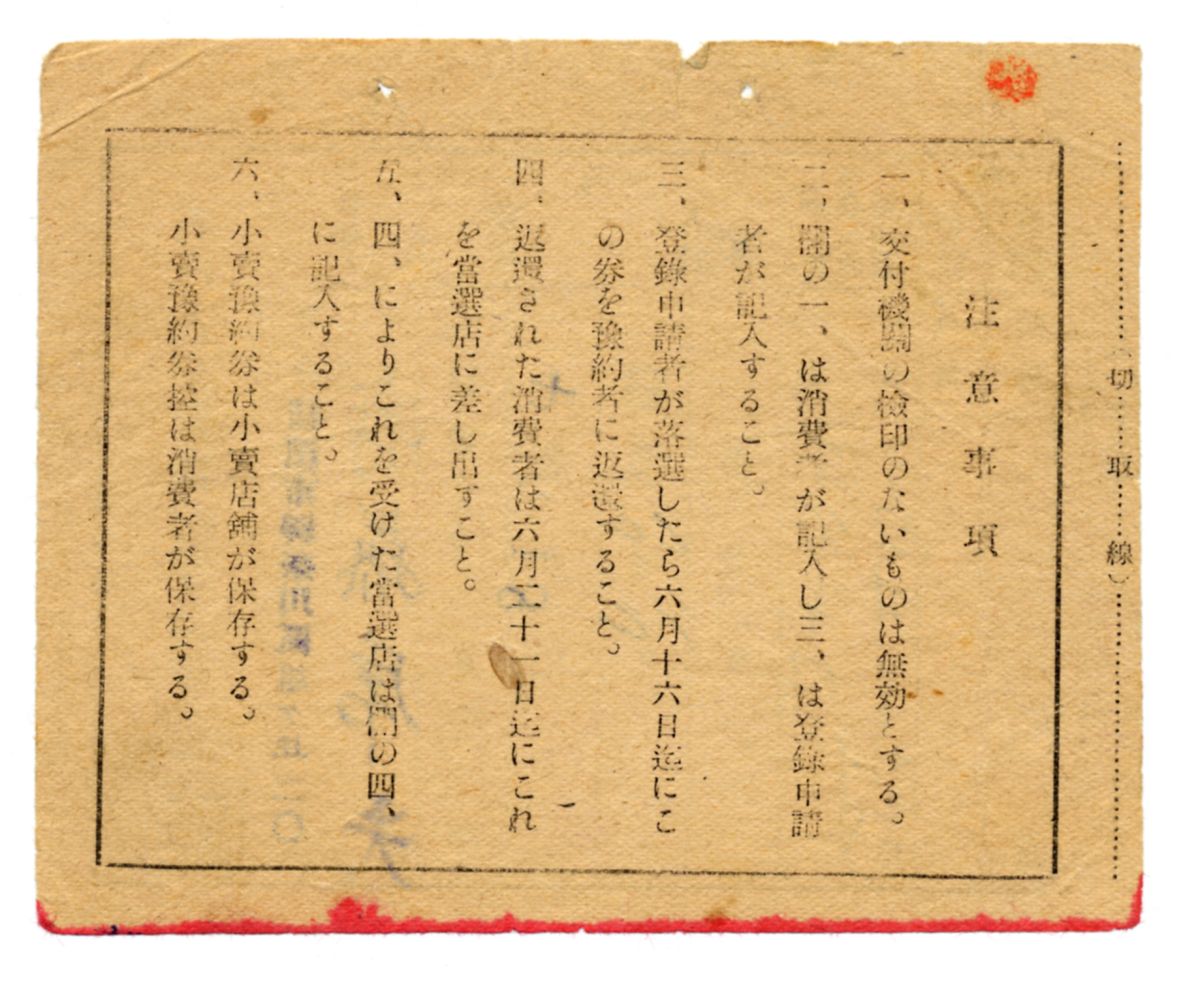 (切取線)
注意事項
一、交付機關の檢印のないものは無効とする。
二、欄の一、は消費者が記入し三、は登錄申請
者が記入すること。
三、登錄申請者が落選したら六月十六日迄にこ
の券を豫約者に返還すること。
四、返還された消費者は六月二十一日迄にこれ
を當選店に差し出すこと。
五、四、によりこれを受けた當選店は欄の四、
に記入すること。
六、小賣豫約券は小賣店舖が保存する。
小賣豫約券控は消費者が保存する。